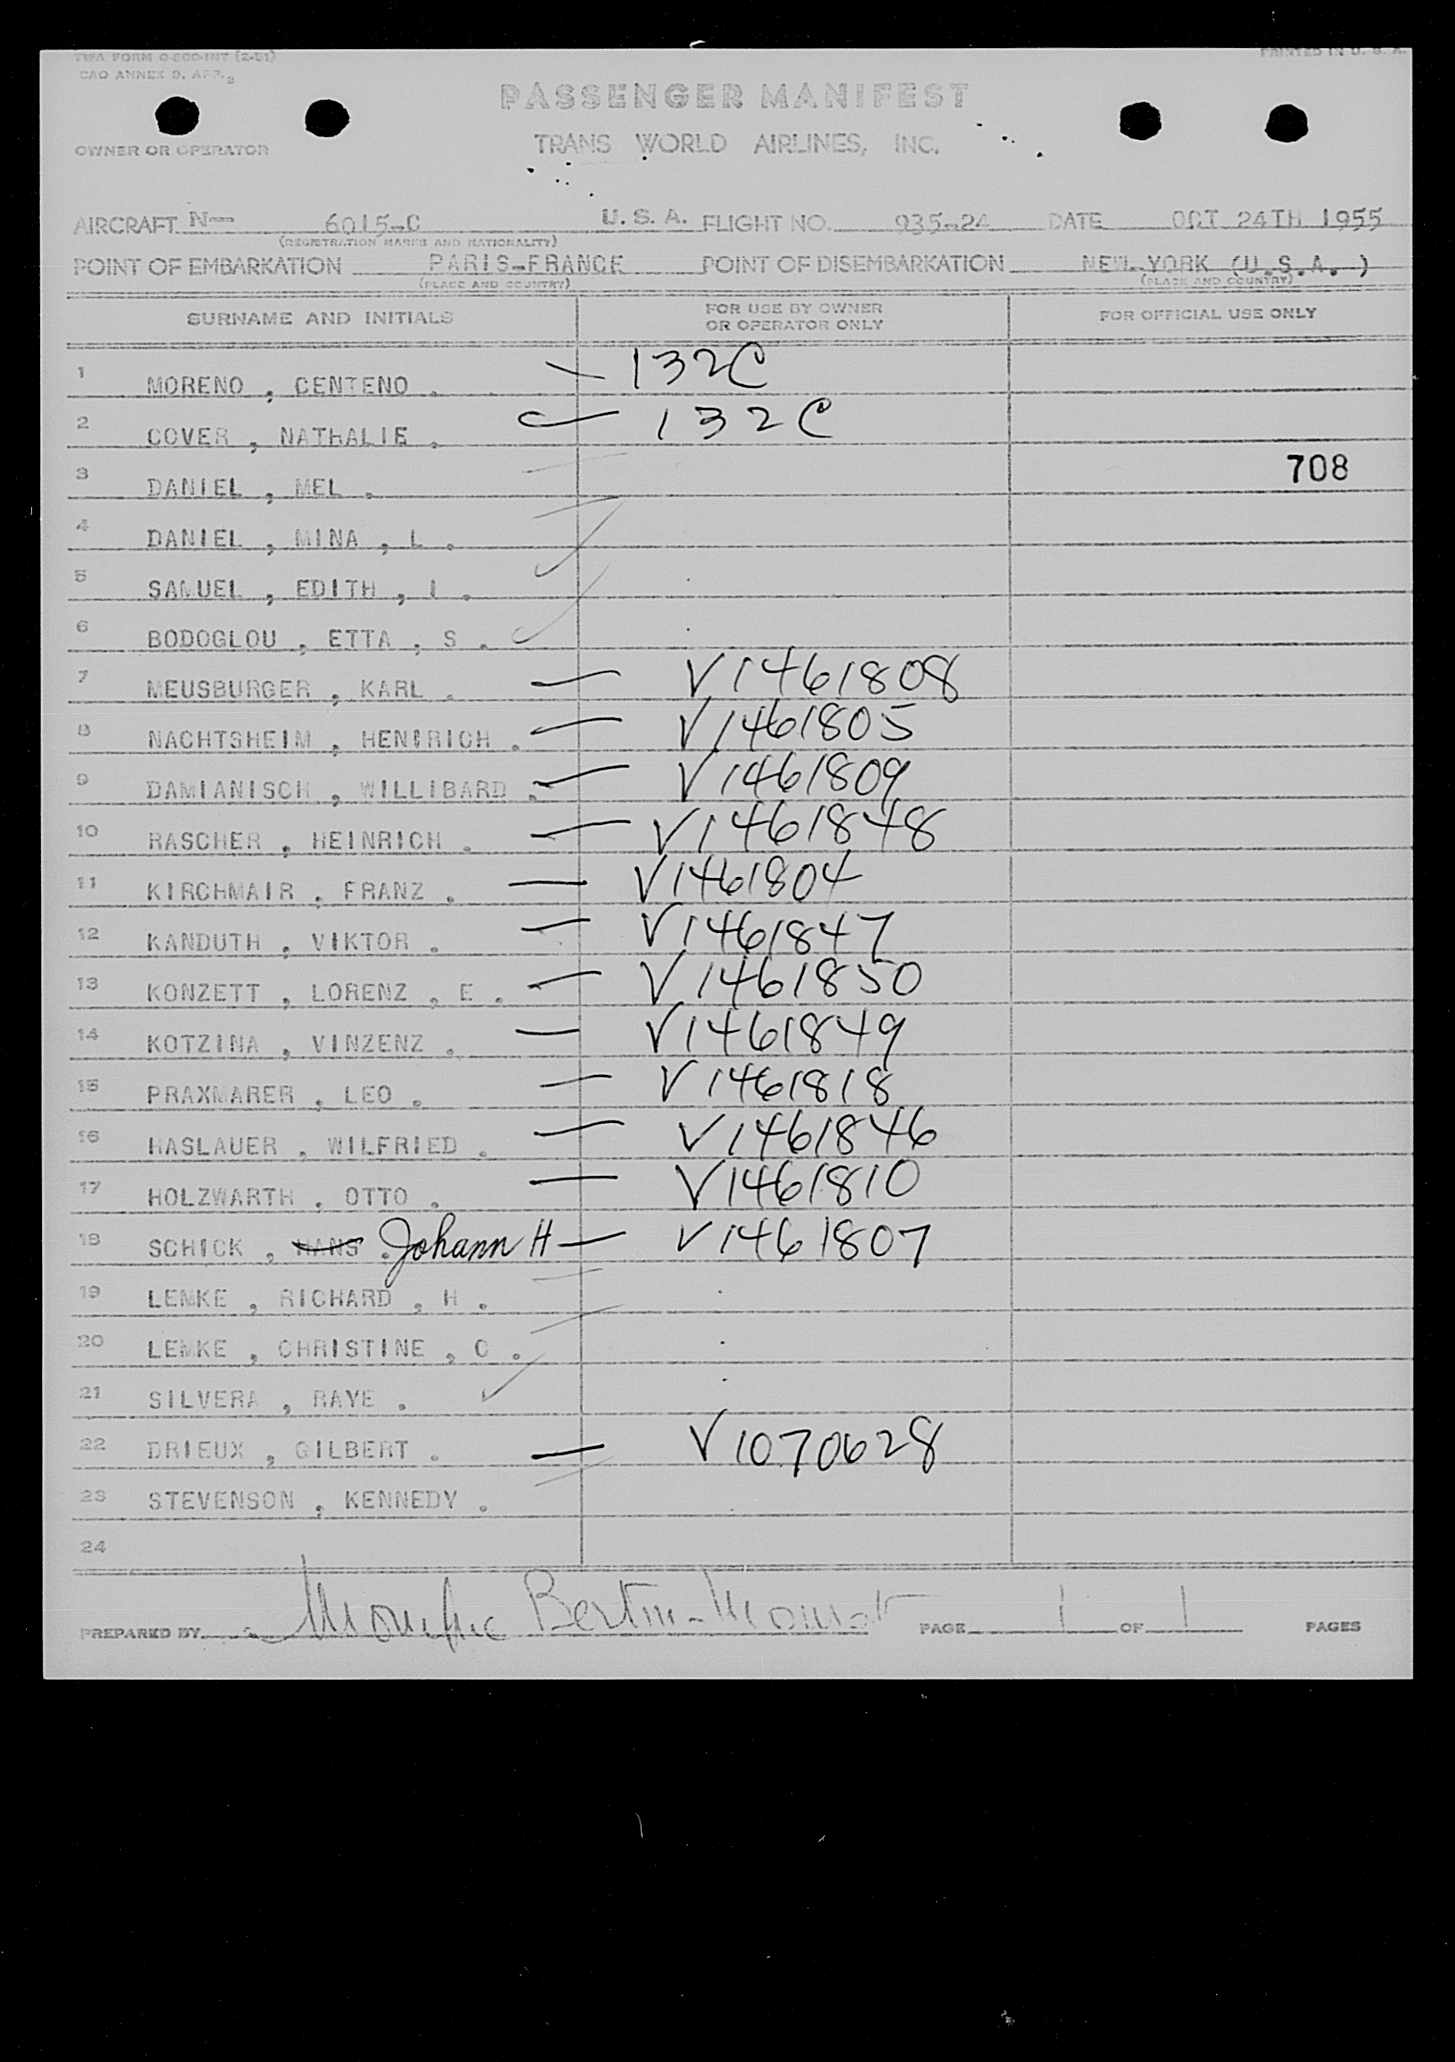 TWA FORM O-800-INT (2-51)
PRINTED IN U. S. A.
CAO ANNEX 9, APP. 2
PASSENGER MANIFEST
OWNER OR OPERATOR
TRANS WORLD AIRLINES, INC.
AIRCRAFT N— 6015-C U. S. A. FLIGHT NO. 935-24 DATE OCT 24TH 1955
(REGISTRATION MARKS AND NATIONALITY)
POINT OF EMBARKATION PARIS-FRANCE POINT OF DISEMBARKATION NEW YORK (U.S.A. )
(PLACE AND COUNTRY) (PLACE AND COUNTRY)
SURNAME AND INITIALS FOR USE BY OWNER OR OPERATOR ONLY FOR OFFICIAL USE ONLY
1 MORENO , CENTENO . 132C
2 COVER , NATHALIE . 132C
3 DANIEL , MEL . 708
4 DANIEL , MINA , L .
5 SAMUEL , EDITH , I .
6 BODOGLOU , ETTA , S .
7 MEUSBURGER , KARL . — V1461808
8 NACHTSHEIM , HENIRICH . — V1461805
9 DAMIANISCH , WILLIBARD . — V1461809
10 RASCHER , HEINRICH . — V1461848
11 KIRCHMAIR , FRANZ . — V1461804
12 KANDUTH , VIKTOR . — V1461847
13 KONZETT , LORENZ , E . — V1461850
14 KOTZINA , VINZENZ . — V1461849
15 PRAXMARER , LEO . — V1461818
16 HASLAUER , WILFRIED . — V1461846
17 HOLZWARTH , OTTO . — V1461810
18 SCHICK , HANS . Johann H — V1461807
19 LEMKE , RICHARD , H .
20 LEMKE , CHRISTINE , C .
21 SILVERA , RAYE .
22 DRIEUX , GILBERT . — V1070628
23 STEVENSON , KENNEDY .
24
PREPARED BY PAGE 1 OF 1 PAGES